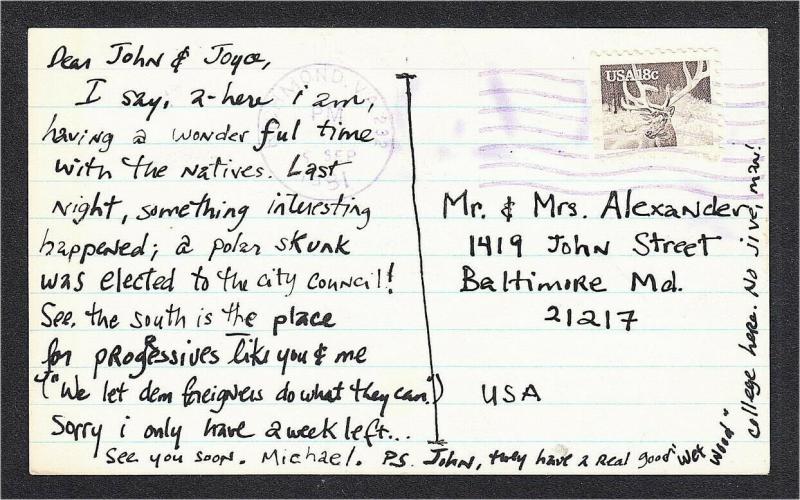 Dear John & Joyce,
I say, a-here i am,
having a wonderful time
with the natives. Last
night, something interesting
happened; a polar skunk
was elected to the city council!
See, the south is the place
for progressives like you & me
("We let dem foreigners do what they can.")
Sorry i only have a week left...
See you soon. Michael. PS. John, they have a real good "Wet Wood"
college here. No jive, man!
MOND, VA 232
PM
SEP
USA18c
Mr. & Mrs. Alexander
1419 John Street
Baltimore Md.
21217
USA